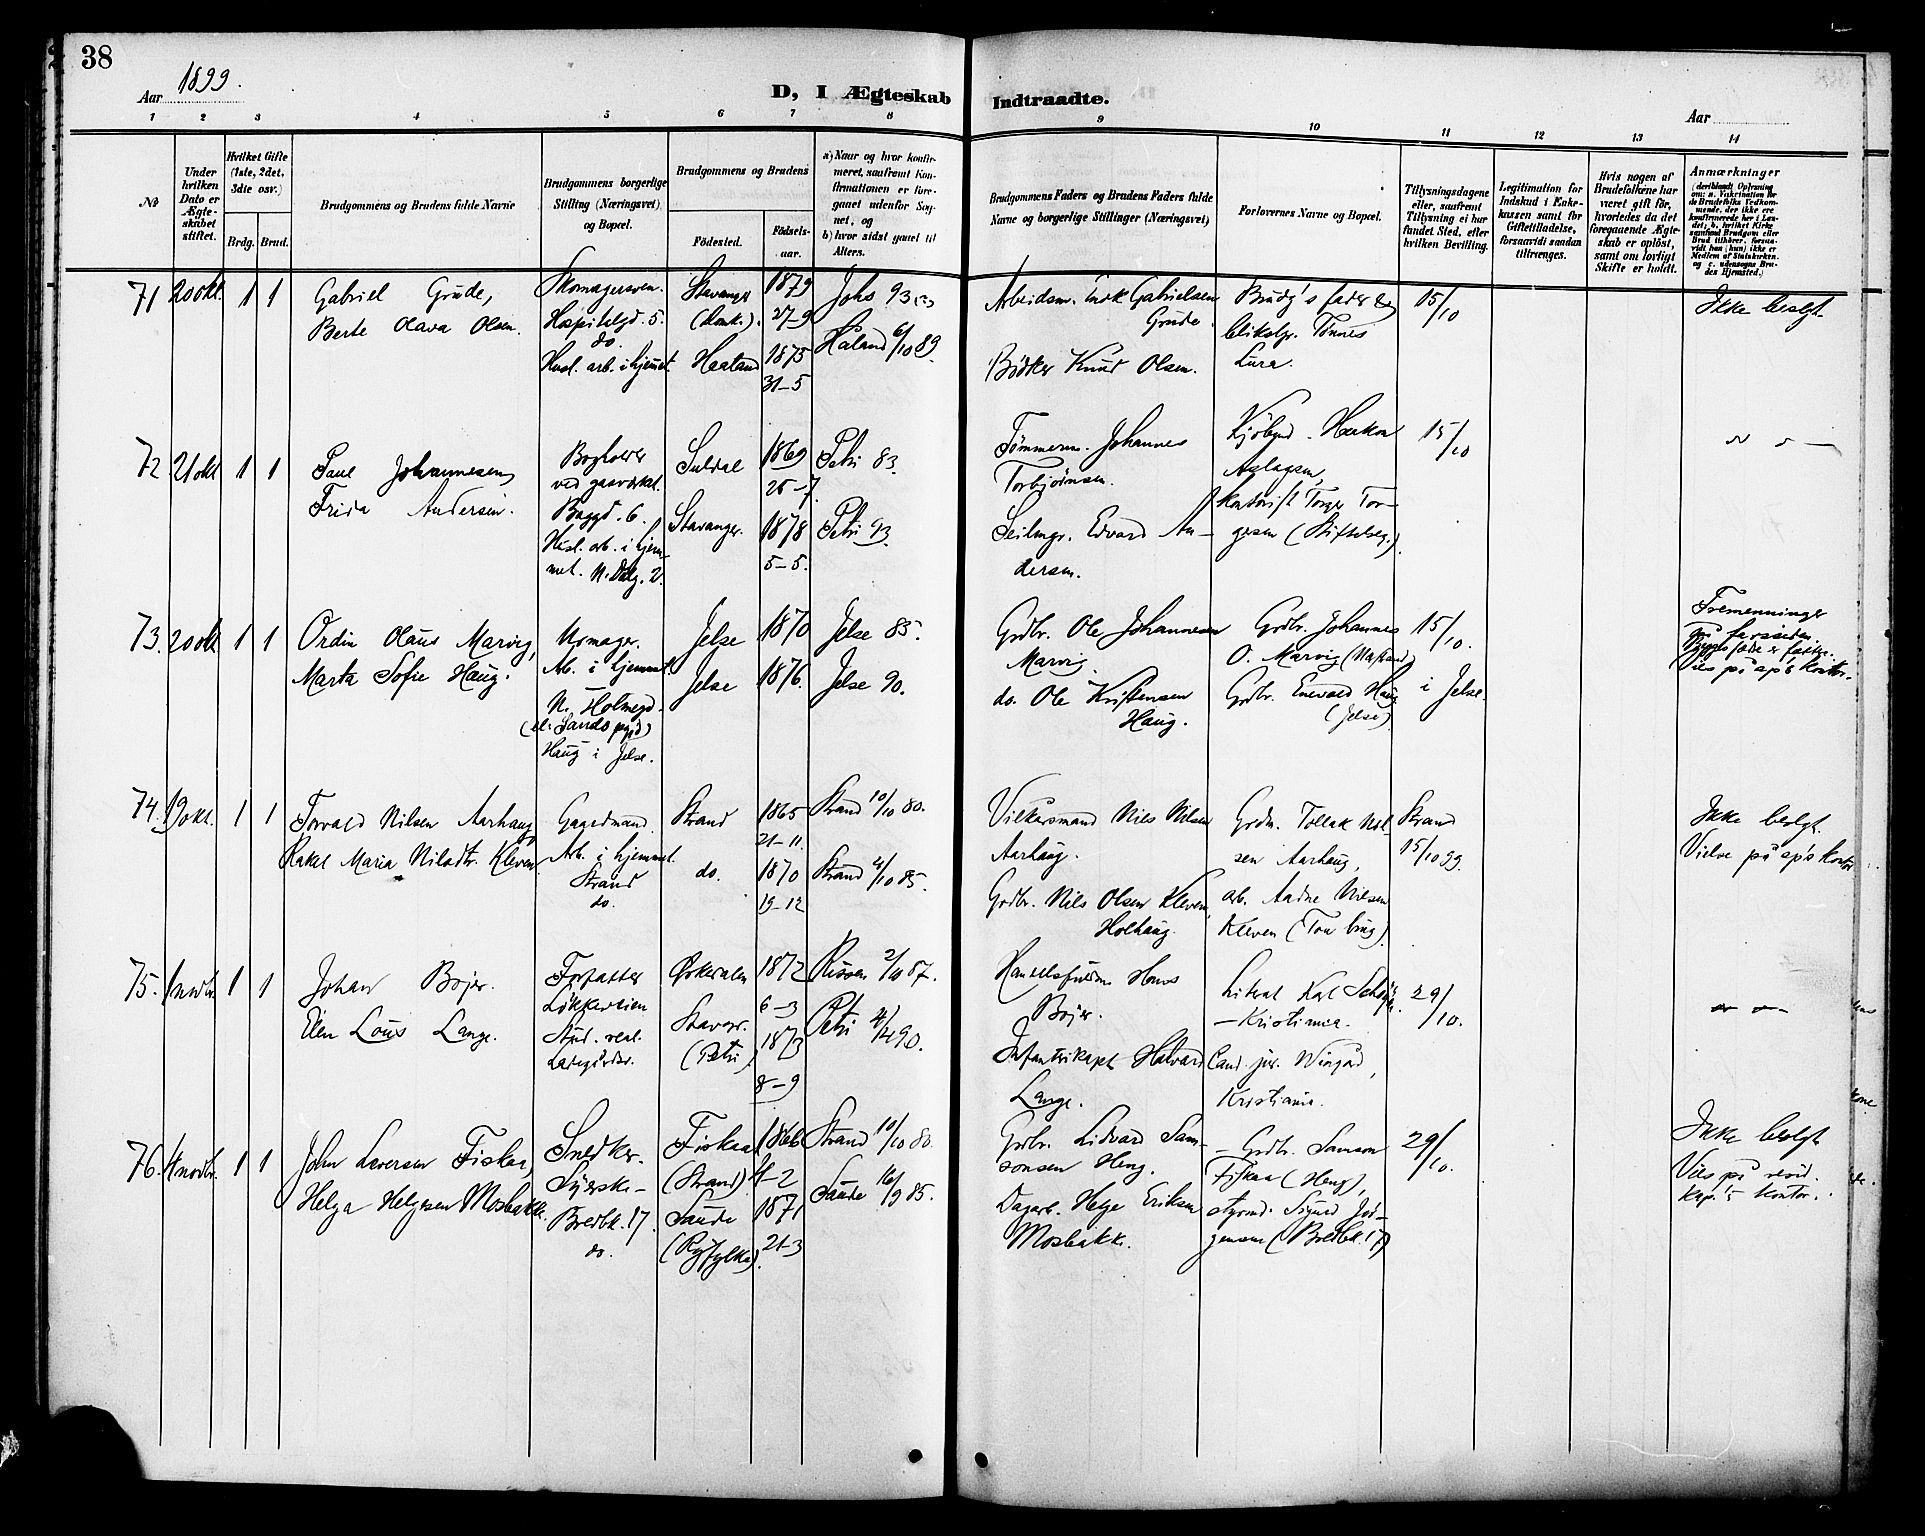 38
Aar 1899.
D, I Ægteskab Indtraadte.
Aar
1 2 3 4 5 6 7 8 9 10 11 12 13 14
No
Under hvilken Dato er Ægteskabet stiftet.
Hvilket Gifte (1ste, 2det, 3die osv.)
Brdg. Brud.
Brudgommens og Brudens fulde Navne
Brudgommens borgerlige Stilling (Næringsvei) og Bopæl.
Brudgommens og Brudens
Fødested.
Fødselsaar.
a) Naar og hvor konfirmeret, saafremt Konfirmationen er foregaaet udenfor Sognet, og
b) hvor sidst gaaet til Alters.
Brudgommens Faders og Brudens Faders fulde Navne og borgerlige Stillinger (Næringsvei)
Forlovernes Navne og Bopæl.
Tillysningsdagene eller, saafremt Tillysning ei har fundet Sted, efter hvilken Bevilling.
Legitimation for Indskud i Enkekassen samt for Giftetilladelse, forsaavidt saadan tiltrænges.
Hvis nogen af Brudefolkene har været gift før, hvorledes da det foregaaende Ægteskab er opløst, samt om lovligt Skifte er holdt.
Anmærkninger
71 20 okt. 1 1
Gabriel Grude,
Berte Olava Olsen.
Skomagersven.
Hospitalgd. 5.
do.
Husl. arb. i hjemmet
Stavanger
(Domk.).
Haaland
1879
27-9
1875
31-5
Johs 93
Haland 6/10 89.
Arbeidsm. Endr. Gabrielsen
Grude.
Bødker Knud Olsen.
Brudg's fader &
blikslgr. Tønnes
Lura.
15/10
Ikke beslgt.
72 21 okt 1 1
Paul Johannesen,
Frida Andersen.
Bogholder
ved gasværket.
Baggd. 6.
Husl. arb. i hjem-
met. N. Dalg. 2.
Suldal
Stavanger.
1869
25-7.
1878
5-5.
Petri 83.
Petri 93.
Tømmerm. Johannes
Torbjørnsen.
Seilmgr. Edvard An-
dersen.
Kjøbmd. Haakon
Aslagsen,
Kontorist Torger Tor-
gersen (Stiftelseg.).
15/10
73. 20 okt 1 1
Ordin Olaus Marvig,
Marta Sofie Haug.
Urmager.
Arb. i hjemmet.
N. Holmegd.
Haug i Jelse.
Jelse
Jelse
1870
1876.
Jelse 85.
Jelse 90.
Grdbr. Ole Johannesen
Marvig.
do. Ole Kristensen
Haug.
Grdbr. Johannes
O. Marvig
Grdbr. Enevald Haug
(Jelse)
15/10.
i Jelse.
Tremenninger
på farsiden.
Vies på sp's kontor.
74. 19 okt. 1 1
Torvald Nilsen Aarhaug
Rakel Maria Nilsdtr. Kleven
Gagedmand.
Arb. i hjemmet.
Strand
do.
Strand
do.
1865
21-11.
1870
19-12
Strand 10/10 80.
Strand 4/10 85.
Vilkarsmand Nils Nilsen
Aarhaug.
Grdbr. Nils Olsen Kleven,
Holhaug.
Grdm. Tollak Nil-
sen Aarhaug,
arb. Aadne Nilsen
Kleven (Tou brug).
Strand
15/10 99.
Ikke beslgt.
Vielse på sp's kontor
75. 1 novbr. 1 1
Johan Bojer.
Ellen Lous Lange.
Forfatter
Løkkeveien
Stud. real.
Ladegårdsv.
Ørkedalen
Stavgr.
(Petri)
1872
6-3
1873
8-9
Rissen 2/10 87.
Petri 4/4 90.
Handelsfuldm. Hans
Bojer.
Infanterikapt. Halvard
Lange.
Literat Karl
- Kristiania.
Cand. jur. Wingård,
Kristiania.
29/10.
76. 4 novbr. 1 1
John Laversen Fiskaa,
Helga Helgesen Mosbakk.
Snedker.
Syerske -
Bredbk. 17.
do.
Fiskaa
(Strand)
Saude
(Ryfylke).
1866
4-2
1871
21-3
Strand 10/10 80.
Saude 16/9 85.
Grdbr. Lidvard Sam-
sonsen Heng.
Dagarb. Helge Eriksen
Mosbakk.
- Grdbr. Samson
Fiskaa (Heng),
styrmd. Sigurd Jør-
gensen (Bredbk. 17)
29/10.
Ikke beslgt
Vies på resid.
kap.'s kontor.